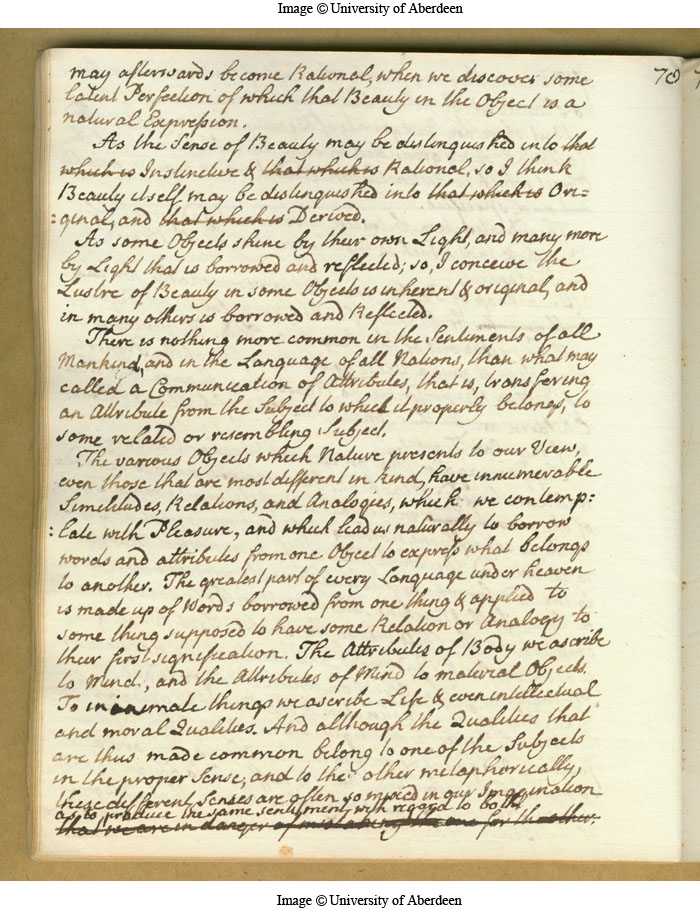 Image © University of Aberdeen
70
may afterwards become Rational, when we discover some
latent Perfection of which that Beauty in the Object is a
natural Expression.
As the Sense of Beauty may be distinguished into that
which is Instinctive & that which is Rational, so I think
Beauty itself may be distinguished into that which is Ori=
:ginal, and that which is Derived.
As some Objects shine by their own Light, and many more
by Light that is borrowed and reflected; so, I conceive the
Lustre of Beauty in some Objects is inherent & original, and
in many others is borrowed and Reflected.
There is nothing more common in the Sentiments of all
Mankind, and in the Language of all Nations, than what may
called a Communication of Attributes, that is, transfering
an Attribute from the Subject to which it properly belongs, to
some related or resembling Subject.
The various Objects which Nature presents to our View,
even those that are most different in kind, have innumerable
Similitudes, Relations, and Analogies, which we contemp:
:late with Pleasure, and which lead us naturally to borrow
words and attributes from one Object to express what belongs
to another. The greatest part of every Language under heaven
is made up of Words borrowed from one thing & applied to
some thing supposed to have some Relation or Analogy to
their first signification. The Attributes of Body we ascribe
to Mind, and the Attributes of Mind to material Objects.
To inanimate things we ascribe Life & even intellectual
and moral Qualities. And although the Qualities that
are thus made common belong to one of the Subjects
in the proper Sense, and to the other metaphorically,
these different Senses are often so mixed in our Imagination
as to produce the same sentiment with regard to both.
that we are in danger of mistaking the one for the other.
Image © University of Aberdeen